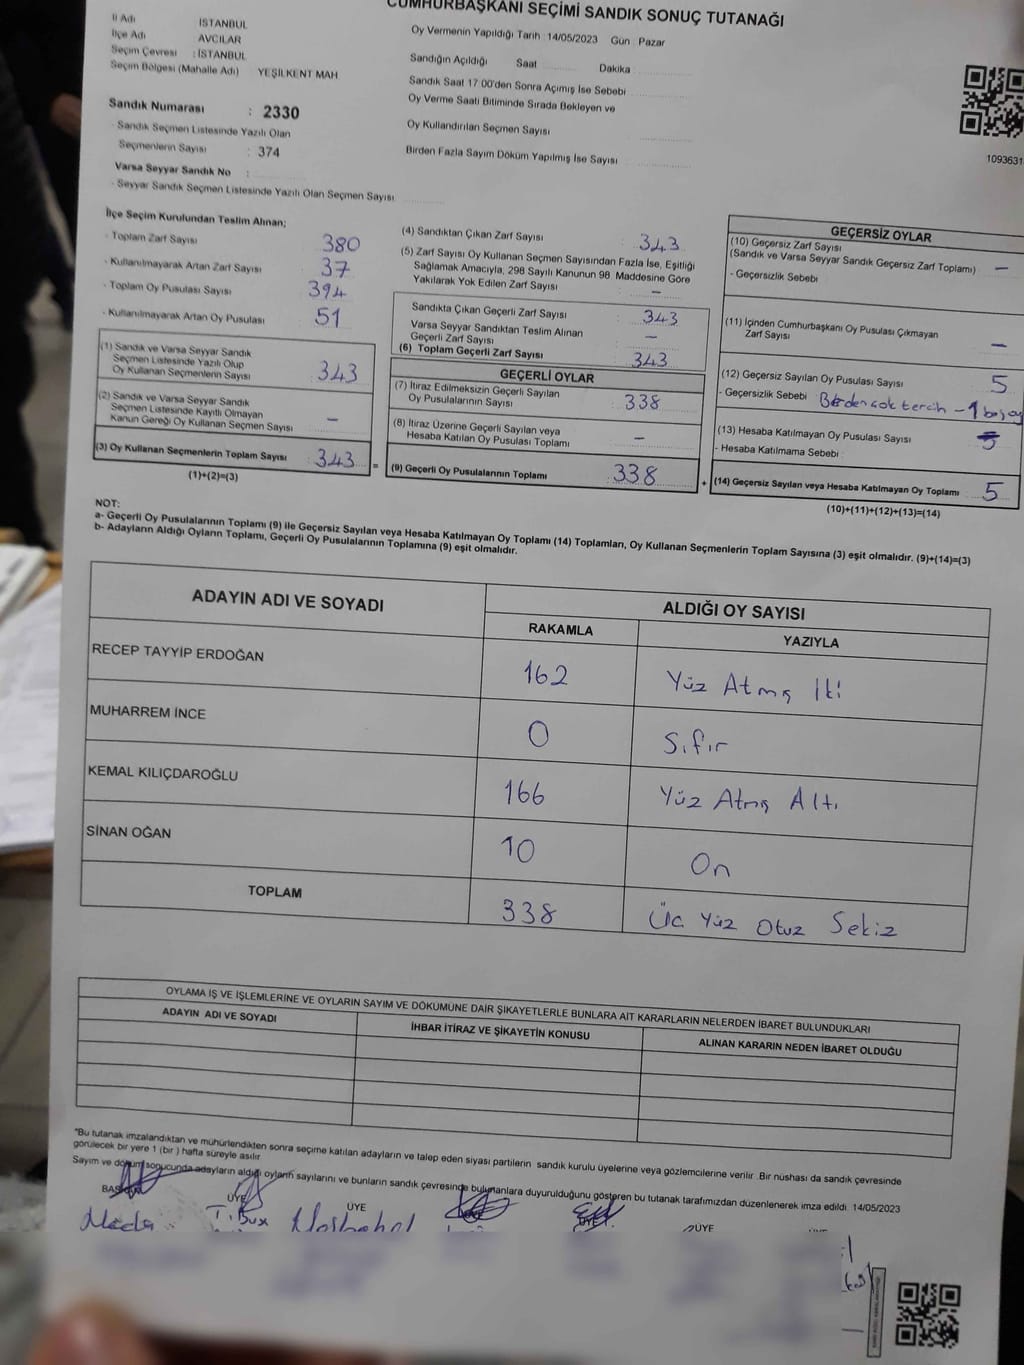 CUMHURBAŞKANI SEÇİMİ SANDIK SONUÇ TUTANAĞI
İl Adı İSTANBUL
İlçe Adı AVCILAR
Seçim Çevresi : İSTANBUL
Seçim Bölgesi (Mahalle Adı) YEŞİLKENT MAH
Sandık Numarası : 2330
- Sandık Seçmen Listesinde Yazılı Olan
Seçmenlerin Sayısı : 374
Varsa Seyyar Sandık No :
- Seyyar Sandık Seçmen Listesinde Yazılı Olan Seçmen Sayısı
Oy Vermenin Yapıldığı Tarih : 14/05/2023 Gün : Pazar
Sandığın Açıldığı Saat Dakika
Sandık Saat 17:00'den Sonra Açımış İse Sebebi
Oy Verme Saati Bitiminde Sırada Bekleyen ve
Oy Kullandırılan Seçmen Sayısı
Birden Fazla Sayım Döküm Yapılmış İse Sayısı
1093631
İlçe Seçim Kurulundan Teslim Alınan;
- Toplam Zarf Sayısı 380
- Kullanılmayarak Artan Zarf Sayısı 37
- Toplam Oy Pusulası Sayısı 394
- Kullanılmayarak Artan Oy Pusulası 51
(1) Sandık ve Varsa Seyyar Sandık
Seçmen Listesinde Yazılı Olup
Oy Kullanan Seçmenlerin Sayısı 343
(2) Sandık ve Varsa Seyyar Sandık
Seçmen Listesinde Kayıtlı Olmayan
Kanun Gereği Oy Kullanan Seçmen Sayısı –
(3) Oy Kullanan Seçmenlerin Toplam Sayısı 343 =
(1)+(2)=(3)
(4) Sandıktan Çıkan Zarf Sayısı 343
(5) Zarf Sayısı Oy Kullanan Seçmen Sayısından Fazla İse, Eşitliği
Sağlamak Amacıyla, 298 Sayılı Kanunun 98. Maddesine Göre
Yakılarak Yok Edilen Zarf Sayısı –
Sandıkta Çıkan Geçerli Zarf Sayısı 343
Varsa Seyyar Sandıktan Teslim Alınan
Geçerli Zarf Sayısı –
(6) Toplam Geçerli Zarf Sayısı 343
GEÇERLİ OYLAR
(7) İtiraz Edilmeksizin Geçerli Sayılan
Oy Pusulalarının Sayısı 338
(8) İtiraz Üzerine Geçerli Sayılan veya
Hesaba Katılan Oy Pusulası Toplamı –
(9) Geçerli Oy Pusulalarının Toplamı 338 +
GEÇERSİZ OYLAR
(10) Geçersiz Zarf Sayısı
(Sandık ve Varsa Seyyar Sandık Geçersiz Zarf Toplamı) –
- Geçersizlik Sebebi
(11) İçinden Cumhurbaşkanı Oy Pusulası Çıkmayan
Zarf Sayısı –
(12) Geçersiz Sayılan Oy Pusulası Sayısı 5
- Geçersizlik Sebebi Birden çok tercih – 1 boş oy
(13) Hesaba Katılmayan Oy Pusulası Sayısı
- Hesaba Katılmama Sebebi
(14) Geçersiz Sayılan veya Hesaba Katılmayan Oy Toplamı 5
(10)+(11)+(12)+(13)=(14)
NOT:
a- Geçerli Oy Pusulalarının Toplamı (9) ile Geçersiz Sayılan veya Hesaba Katılmayan Oy Toplamı (14) Toplamları, Oy Kullanan Seçmenlerin Toplam Sayısına (3) eşit olmalıdır. (9)+(14)=(3)
b- Adayların Aldığı Oyların Toplamı, Geçerli Oy Pusulalarının Toplamına (9) eşit olmalıdır.
ADAYIN ADI VE SOYADI ALDIĞI OY SAYISI
RAKAMLA YAZIYLA
RECEP TAYYİP ERDOĞAN 162 Yüz Atmış İki
MUHARREM İNCE 0 Sıfır
KEMAL KILIÇDAROĞLU 166 Yüz Atmış Altı
SİNAN OĞAN 10 On
TOPLAM 338 Üç Yüz Otuz Sekiz
OYLAMA İŞ VE İŞLEMLERİNE VE OYLARIN SAYIM VE DÖKÜMÜNE DAİR ŞİKAYETLERLE BUNLARA AİT KARARLARIN NELERDEN İBARET BULUNDUKLARI
ADAYIN ADI VE SOYADI İHBAR İTİRAZ VE ŞİKAYETİN KONUSU ALINAN KARARIN NEDEN İBARET OLDUĞU
"Bu tutanak imzalandıktan ve mühürlendikten sonra seçime katılan adayların ve talep eden siyasi partilerin sandık kurulu üyelerine veya gözlemcilerine verilir. Bir nüshası da sandık çevresinde
görülecek bir yere 1 (bir) hafta süreyle asılır.
Sayım ve döküm sonucunda adayların aldığı oyların sayılarını ve bunların sandık çevresinde bulunanlara duyurulduğunu gösteren bu tutanak tarafımızdan düzenlenerek imza edildi. 14/05/2023
BAŞKAN ÜYE ÜYE ÜYE ÜYE ÜYE